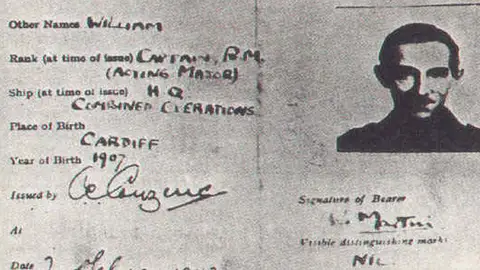 Other Names WILLIAM
Rank (at time of issue) CAPTAIN, R.M.
(ACTING MAJOR)
Ship (at time of issue) H Q
COMBINED OPERATIONS
Place of Birth
CARDIFF
Year of Birth 1907
Issued by
At
Date
Signature of Bearer
Martin
Visible distinguishing marks
NIL